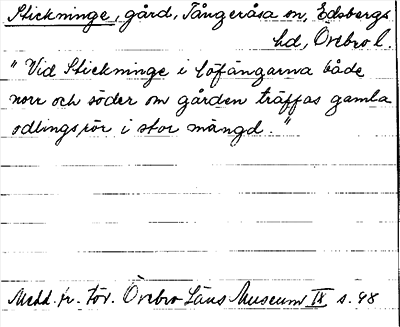 Stickninge, gård, Tångeråsa sn, Edsbergs
hd, Örebro l.
"Vid Stickninge i löfängarna både
norr och söder om gården träffas gamla
odlingsrör i stor mängd."
Medd. fr. För. Örebro Läns Museum IX s. 98